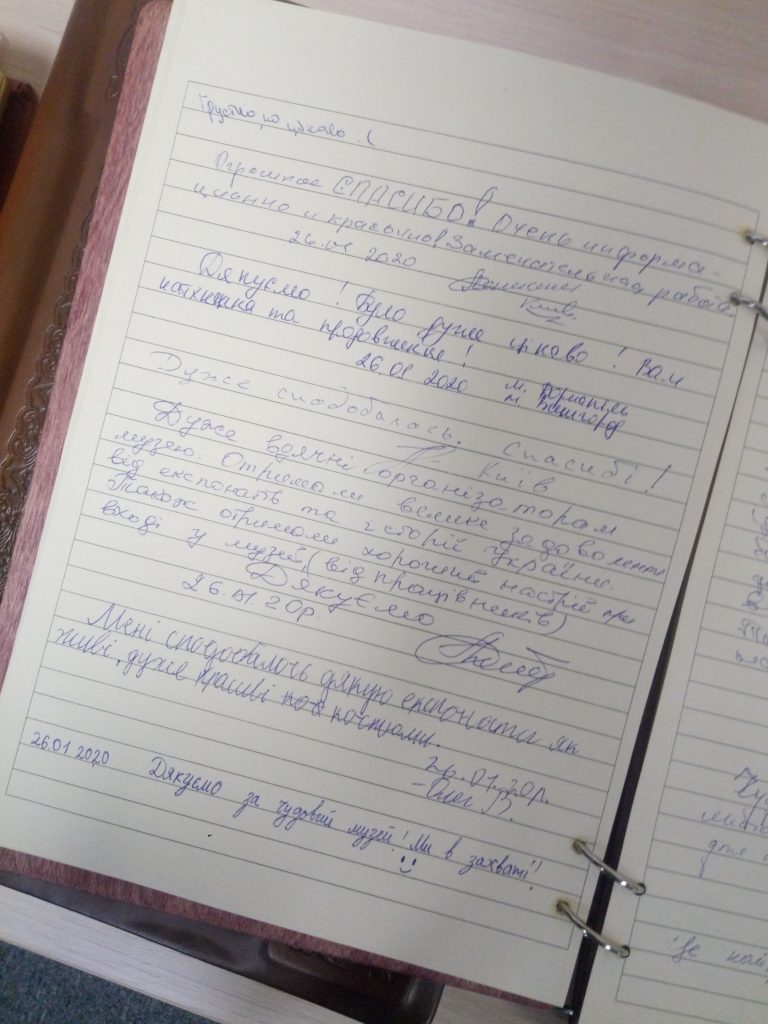 Грустно, но цікаво :(
Огромное СПАСИБО! Очень информа-
ционно и красочно! Замечательная работа
26.01 2020
Киев
Дякуємо! Було дуже цікаво! Вам
натхнення та продовження!
26.01 2020 м. Бориспіль
м. Вишгород
Дуже сподобалось. Спасибі!
Київ
Дуже вдячні організаторам
музею. Отримали велике задоволення
від експонатів та історії України.
Також отримали хороший настрій при
вході у музей (від працівників)
Дякуємо
26.01.20р.
Мені сподобалось дякую експонати як
живі, дуже красиві костюми.
26.01.20р.
-Олег В.
26.01 2020 Дякуємо за чудовий музей! Ми в захваті!